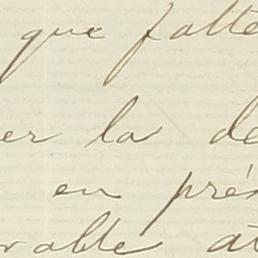 que fatte
er la de
en prés
rable at